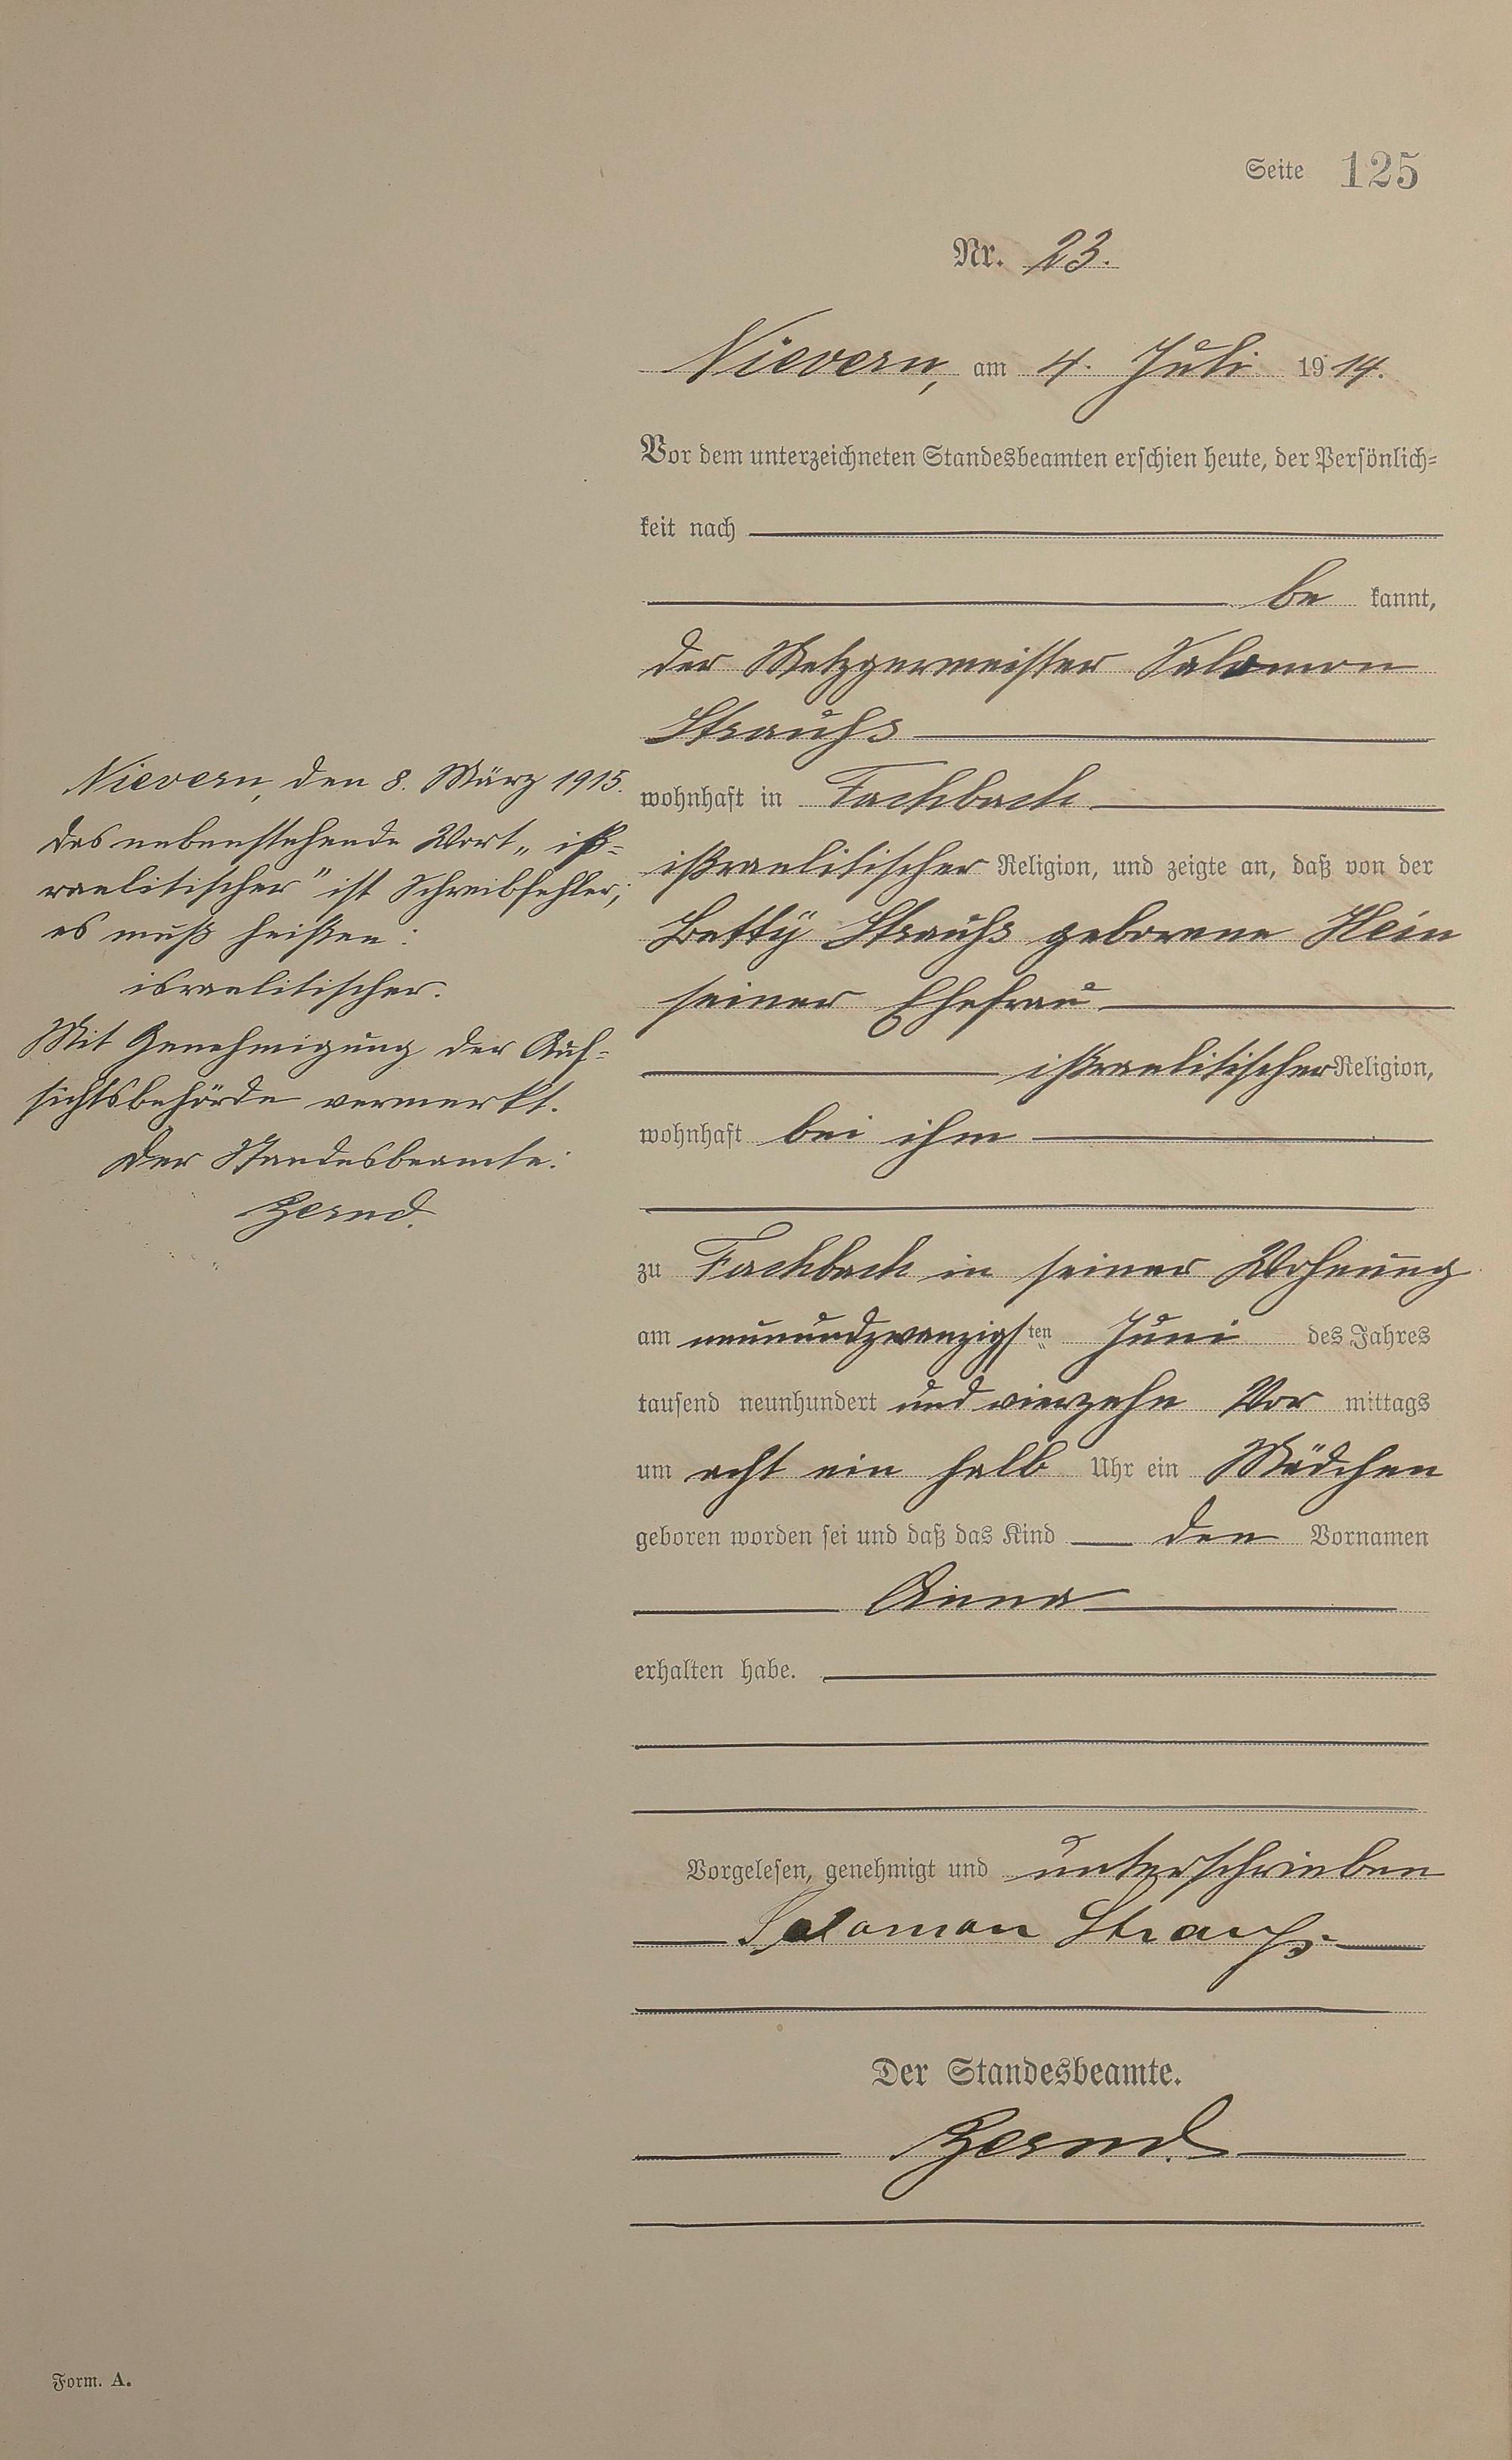 Seite 125
Nr. 23.
Nievern, am 4. Juli 1914.
Vor dem unterzeichneten Standesbeamten erschien heute, der Persönlich=
keit nach
be kannt,
der Metzgermeister Salomon
Strauhs
wohnhaft in Fachbach
ißraelitischer Religion, und zeigte an, daß von der
Betty Strauhs geborene Hein
seiner Ehefrau
ißraelitischer Religion,
wohnhaft bei ihm
zu Fachbach in seiner Wohnung
am neunundzwanzigsten Juni des Jahres
tausend neunhundert und vierzehn Vor mittags
um acht ein halb Uhr ein Mädchen
geboren worden sei und daß das Kind den Vornamen
Anna
erhalten habe.
Vorgelesen, genehmigt und unterschrieben
Salomon Strauhs
Der Standesbeamte.
Nievern, den 8. März 1915.
Das nebenstehende Wort „iß=
raelitischer" ist Schreibfehler,
es muß heißen:
israelitischer.
Mit Genehmigung der Auf=
sichtsbehörde vermerkt.
Der Standesbeamte:
Form. A.